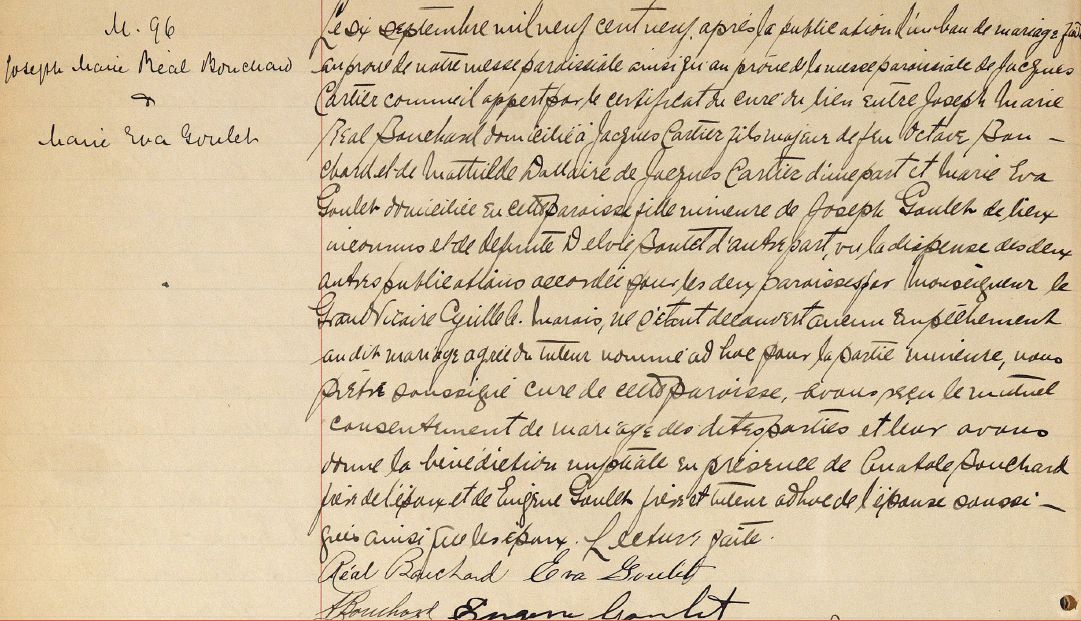 M. 96
Joseph Marie Réal Bouchard
&
Marie Eva Goulet
Le six septembre mil neuf cent neuf, après la publication d'un ban de mariage faite
au prone de notre messe paroissiale ainsi qu'au prône de la messe paroissiale de Jacques
Cartier comme il appert par le certificat du curé du lieu entre Joseph Marie
Réal Bouchard domicilié à Jacques Cartier fils majeur de feu Octave Bou-
chard et de Mathilde Dallaire de Jacques Cartier d'une part et Marie Eva
Goulet domiciliée en cette paroisse fille mineure de Joseph Goulet de lieux
inconnus et de defunte Delvie Boutet d'autre part, vu la dispense des deux
autres publications accordée pour les deux paroisses par Monseigneur le
Grand Vicaire Cyrille E. Marois, ne s'étant découvert aucun empêchement
au dit mariage agréé du tuteur nommé ad hoc pour la partie mineure, nous
prêtre soussigné curé de cette paroisse, avons reçu le mutuel
consentement de mariage des dites parties et leur avons
donné la bénédiction nuptiale en présence de Anatole Bouchard
frère de l'époux et de Eugène Goulet frère et tuteur ad hoc de l'épouse soussi-
gnés ainsi que les époux. Lecture faite.
Réal Bouchard Eva Goulet
A Bouchard Eugène Goulet